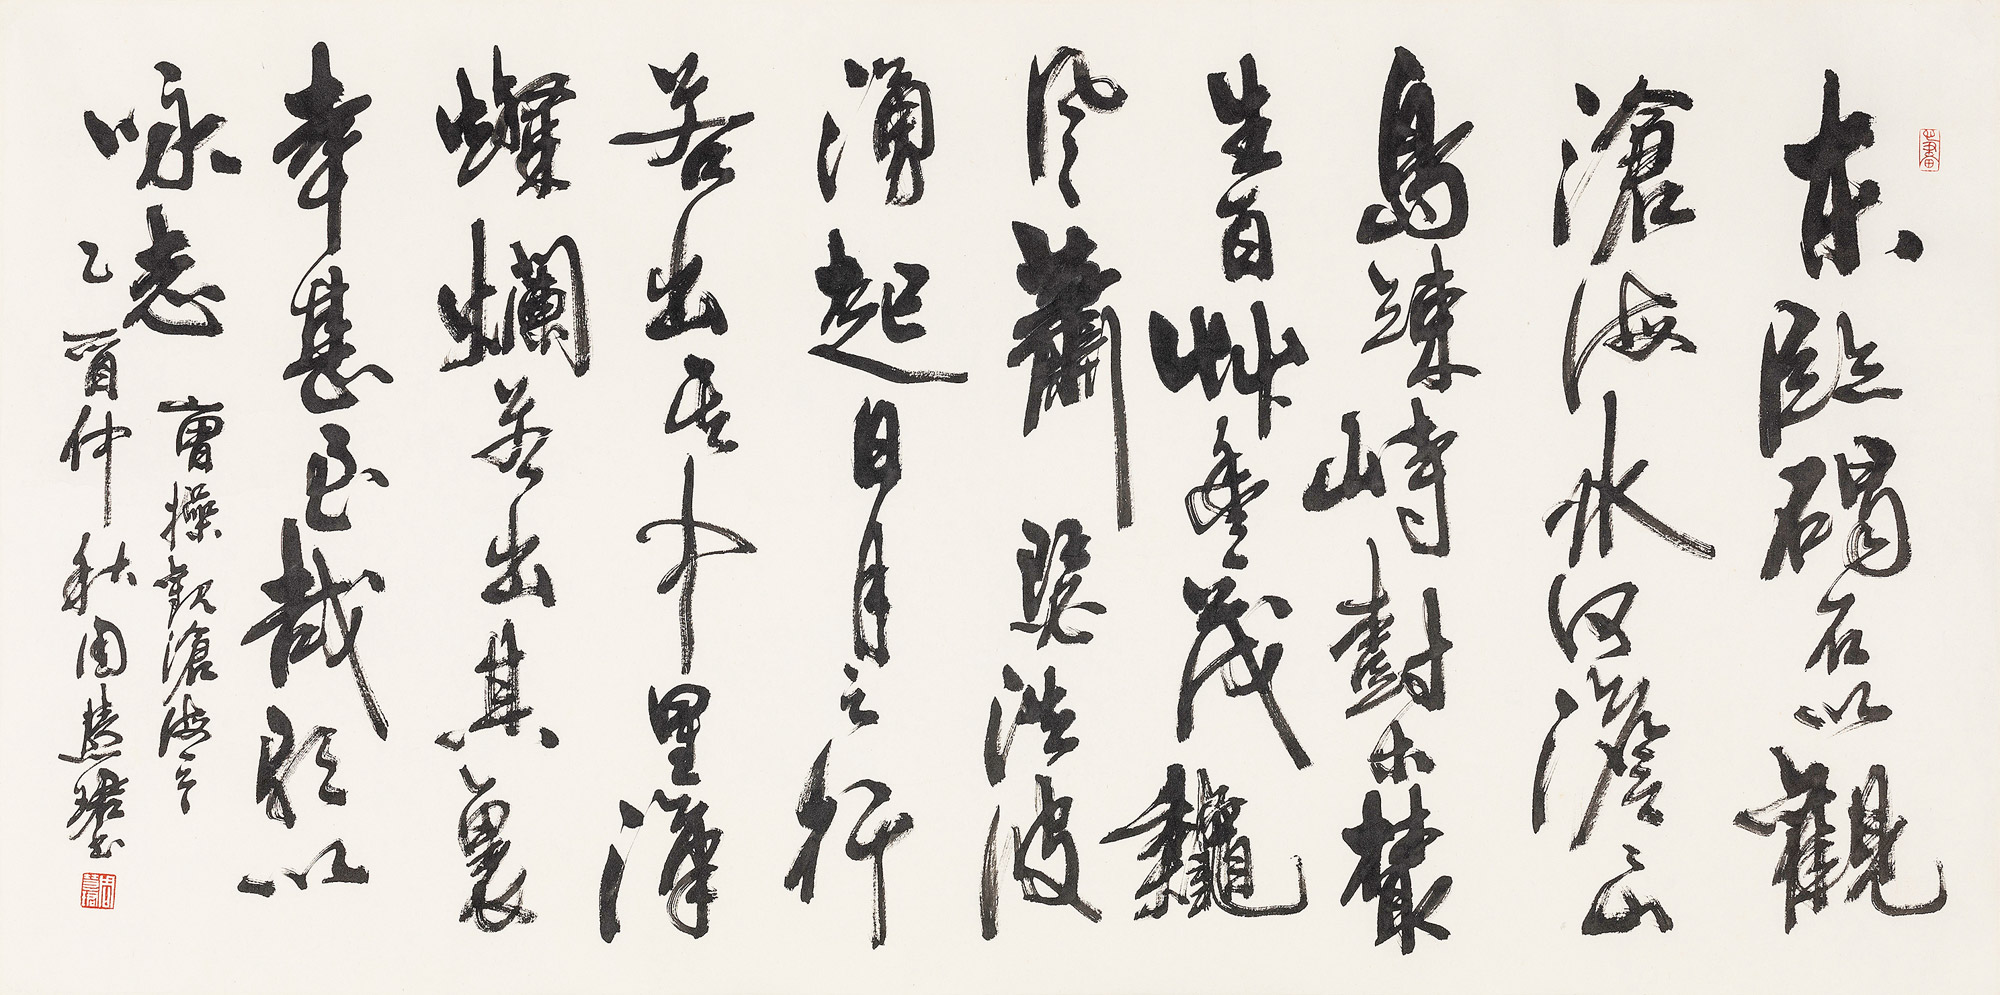 東臨碣石以觀
滄海水何澹々山
島竦峙樹木叢
生百艸豐茂龝
風蕭瑟洪波
湧起日月之行
若出其中星漢
燦爛若出其裏
幸甚至哉歌以
咏志
曹操觀滄海
乙酉仲秋周慧珺書